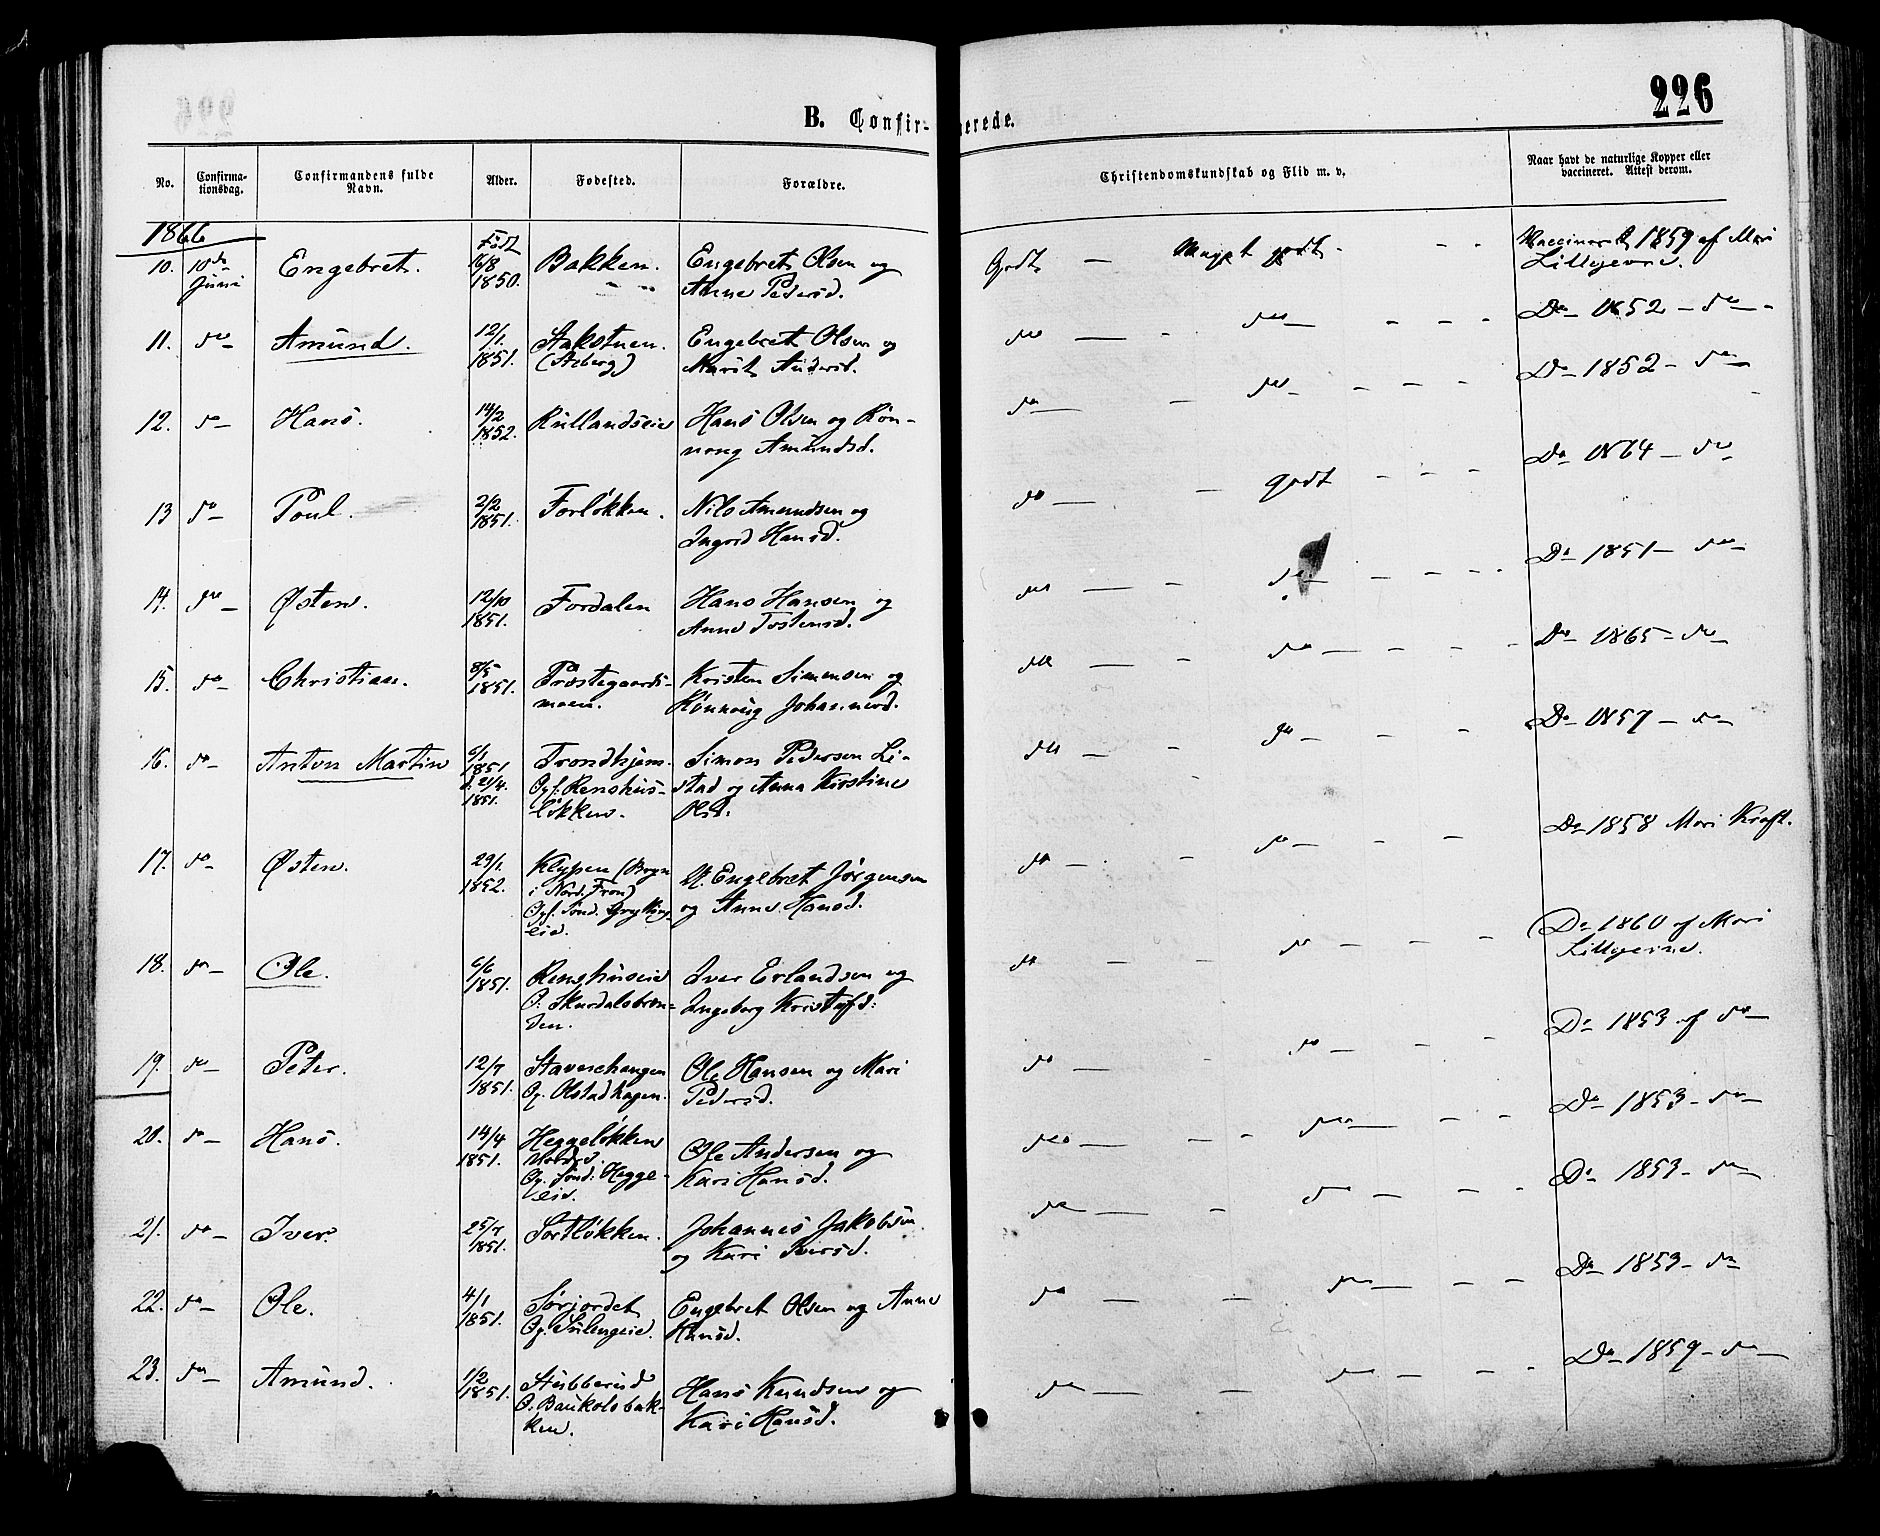 226
B. Confirmerede.
No. Confirmationsdag. Confirmandens fulde Navn. Alder. Fødested. Forældre. Christendomskundskab og Flid m. v. Naar havt de naturlige Kopper eller vaccineret. Attest derom.
1866
10. 10de Juni Engebret. Født 16/8 1850. Bakken. Engebret Olsen og Anne Pedersd. Godt — Meget godt - - Vaccineret 1859 af Mari Lillegjerne.
11. do — Amund. 12/1 1851. Engebret Olsen og Marit Andersd. do — - do — - - - Do 1852 — do — -
12. do — Hans. 14/2 1852. Rullandseie Hans Olsen og Rønnoug Amundsd. do — - do - - - - Do 1852 - do —
13 do — Poul. 2/2 1851. Forløkken. Nils Amundsen og Ingrid Hansd. do — - godt - - - Do 1864 — do
14. do — Østen. 12/10 1851. Fordalen Hans Hansen og Anne Tostensd. do — - do — - - - - Do 1851 — do —
15. do — Christian. 8/5 1851. Præstegaardsmoen. Kristen Simensen og Rønnoug Johannesd. do — - do — - - - Do 1865 — do
16. do — Anton Martin 6/1 1851 d. 21/4 1851. Trondhjem. Opf. Renshusløkken. Simon Pedersen Listad og Anna Kirstine Olsd. do — - do - - - Do 1857 — do
17. do — Østen. 29/1 1852. Klypen (Bryn i Nord. Fron) Opf. Sønd. Gryttingeie. U. Engebret Jørgensen og Anne Hansd. do — - do — - - Do 1858 Mari Kraft.
18. do — Ole. 6/6 1851. Renshuseie O. Skurdalsbrenden. Iver Erlandsen og Ingeborg Kristofd: do - - do - - - Do 1860 af Mari Lillegjerne.
19. do — Peter. 12/7 1851. Stavershaugen Op. Olstadhagen. Ole Hansen og Mari Pedersd. do — - do — - - Do 1853 af do —
20. do — Hans. 14/4 1851. Heggeløkken nordre. Op. Sønd. Heggeeie. Ole Andersen og Kari Hansd. do — - - do — - - Do 1853 — do —
21. do — Iver. 25/7 1851. Sortløkken. Johannes Jakobsen og Kari Iversd. do — - do — - - Do 1853 — do
22. do — Ole. 4/1 1851. Sørjordet Op. Sulengeie. Engebret Olsen og Anne Hansd. do — — do — - - Do 1853 - do
23. do — Amund. 1/2 1851. Stubberud O. Baukolsbakken. Hans Knudsen og Kari Hansd. do — — do — - - Do 1859 — do —